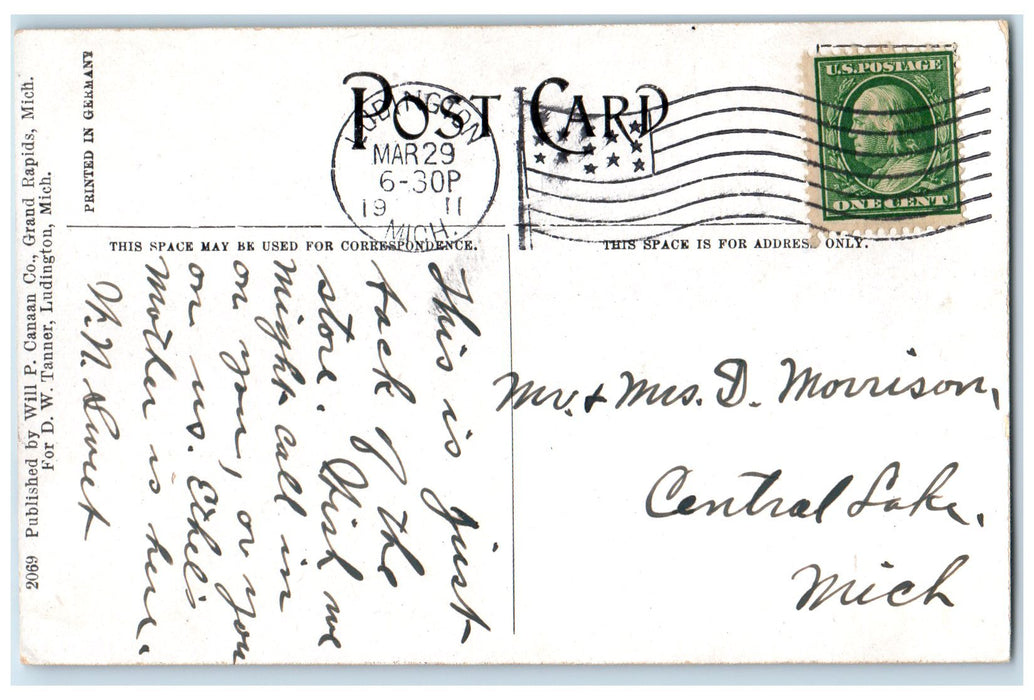 POST CARD
LUDINGTON
MAR 29
6-30P
19 11
MICH.
U.S. POSTAGE
ONE CENT
THIS SPACE MAY BE USED FOR CORRESPONDENCE.
THIS SPACE IS FOR ADDRESS ONLY.
This is just
back of the
store. Wish we
might call in
on you, or you
on us. Ethel's
Mother is here.
W. N. Sweet
Mr. & Mrs. D. Morrison,
Central Lake,
Mich
PRINTED IN GERMANY
2069 Published by Will P. Canaan Co., Grand Rapids, Mich.
For D. W. Tanner, Ludington, Mich.